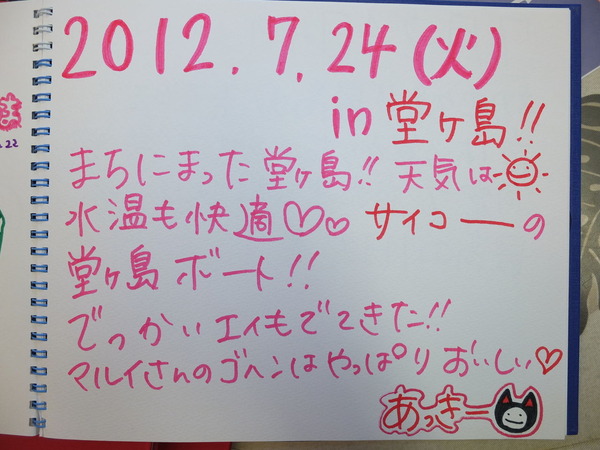 2012.7.24(火)
in 堂ヶ島!!
まちにまった堂ヶ島!! 天気は
水温も快適♡♡ サイコーの
堂ヶ島ボート!!
でっかいエイもでてきた!!
マルイさんのゴハンはやっぱりおいしい♡
あっきー
.22